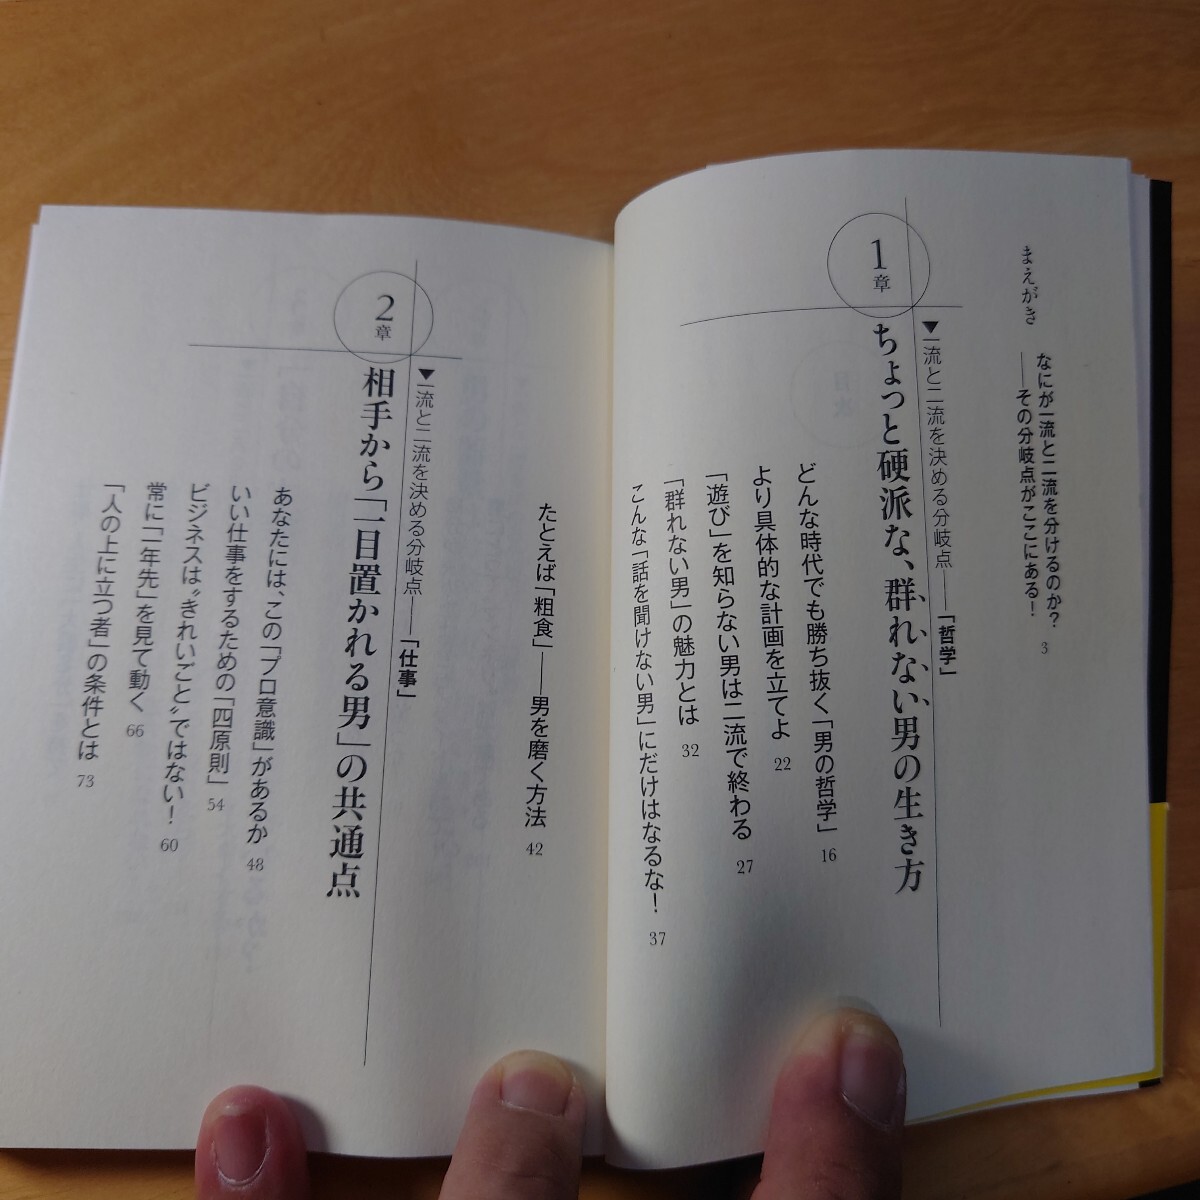 まえがき
なにが一流と二流を分けるのか？
――その分岐点がここにある！ 3
1章
▼一流と二流を決める分岐点――「哲学」
ちょっと硬派な、群れない男の生き方
どんな時代でも勝ち抜く「男の哲学」 16
より具体的な計画を立てよ 22
「遊び」を知らない男は二流で終わる 27
「群れない男」の魅力とは 32
こんな「話を聞けない男」にだけはなるな！ 37
たとえば「粗食」――男を磨く方法 42
2章
▼一流と二流を決める分岐点――「仕事」
相手から「一目置かれる男」の共通点
あなたには、この「プロ意識」があるか 48
いい仕事をするための「四原則」 54
ビジネスは〝きれいごと〟ではない！ 60
常に「一年先」を見て動く 66
「人の上に立つ者」の条件とは 73